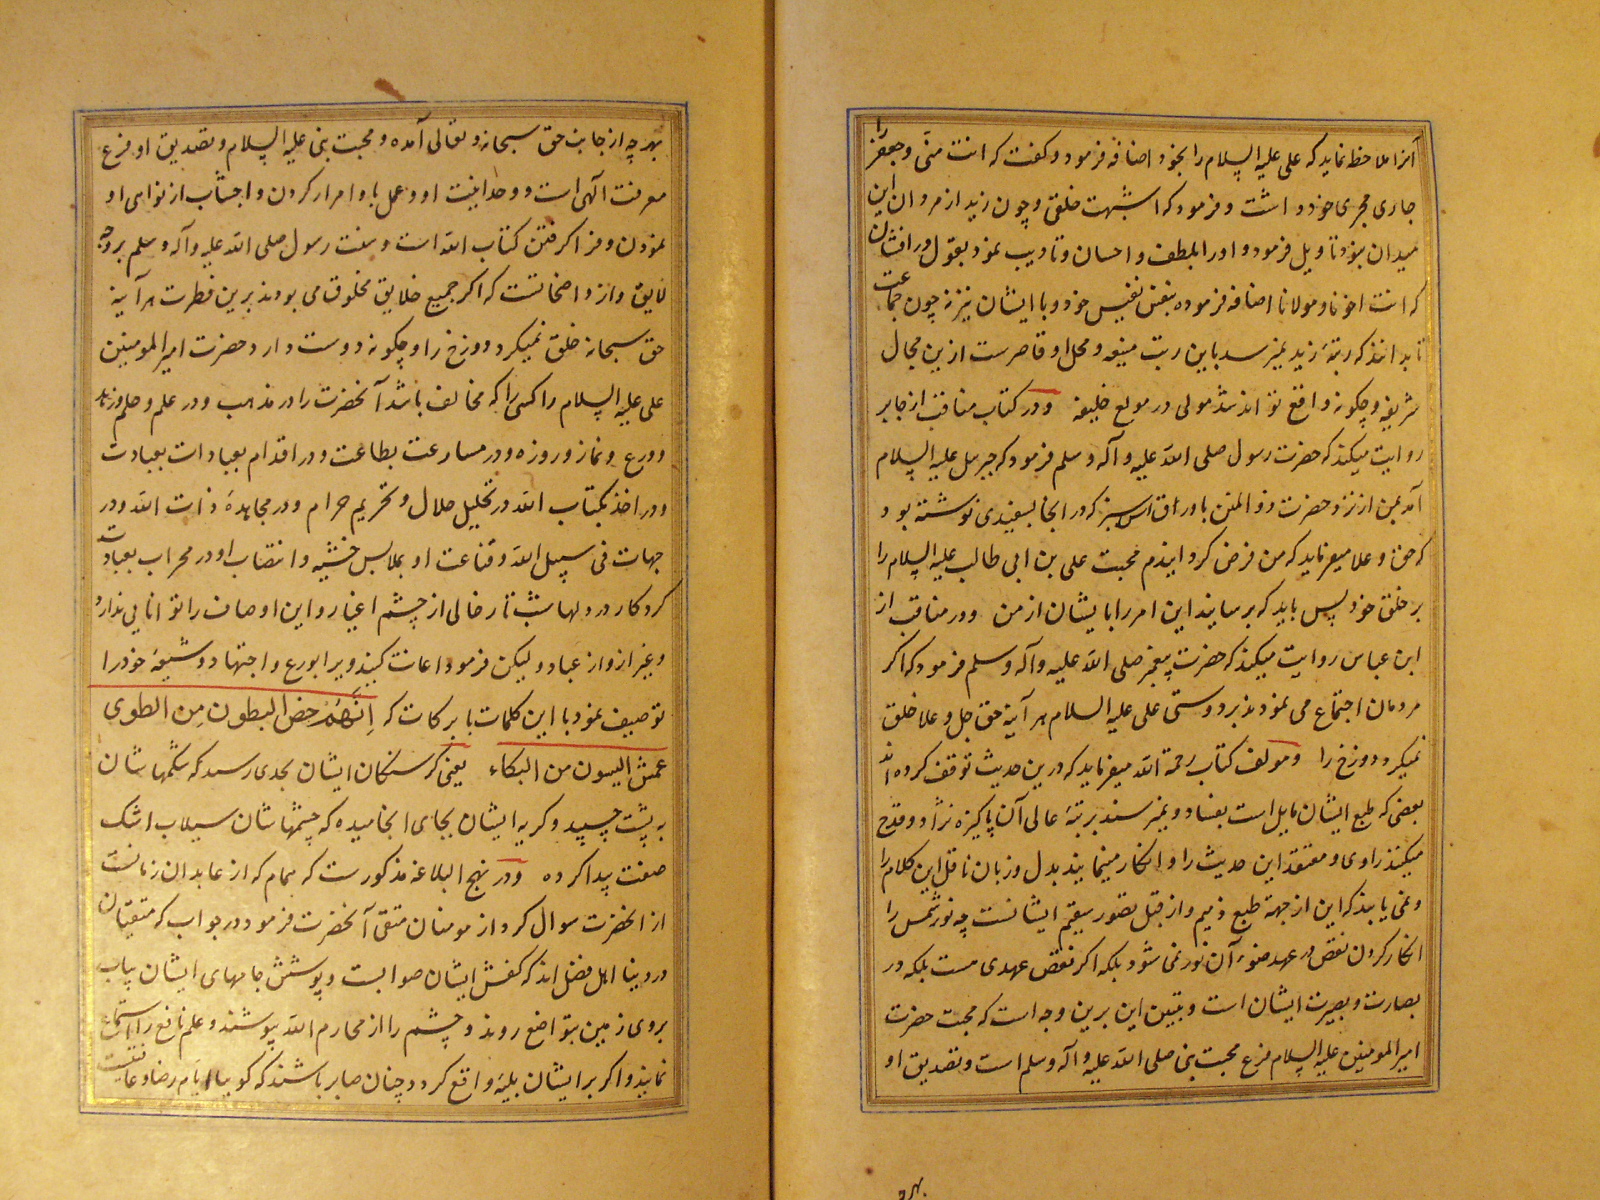 آنرا ملاحظه نماید که علی علیه السلام را بخود اضافه فرمود و گفت که انت منی و جعفر را
جاری مجری خود داشت و فرمود که اشبهت خلقی و چون زید از مردان این
میدان نبود تاویل فرمود و او را بلطف و احسان و تادیب نمود بقول در افشان
که انت اخونا و مولانا اضافه فرموده بنفس نفیس خود و با ایشان نیز نه چون جماعت
بدانند که رتبهٔ زید نمیرسد باین رتبت منیعه و محل او قاصرست ازین مجال
شریفه و چگونه واقع تواند شد مولی در موضع خلیفه و در کتاب مناقب از جابر
روایت میکند که حضرت رسول صلی الله علیه و آله و سلم فرمود که جبرئیل علیه السلام
آمد بمن از نزد حضرت ذو المنن با ورق آس سبز که در انجا بسفیدی نوشته بود
که حق و علا میفرماید که من فرض گردانیدم محبت علی بن ابی طالب علیه السلام را
بر خلق خود پس باید که برسانید این امر را بایشان از من و در مناقب از
ابن عباس روایت میکند که حضرت پیغمبر صلی الله علیه و آله و سلم فرمود که اگر
مردمان اجتماع می نمودند بر دوستی علی علیه السلام هر آینه حق جل و علا خلق
نمیکرد دوزخ را و مولف کتاب رحمة الله میفرماید که درین حدیث توقف کرده اند
بعضی که طبع ایشان مایل است بعناد و نمیرسند برتبهٔ عالی آن پاکیزه نژاد و قدح
میکنند راوی و معتقد این حدیث را و انکار مینمایند بدل و زبان ناقل این کلام را
و نمی یابند که این از جهة طبع ذمیم و از قبل تصور سقیم ایشانست چه نور شمس را
انکار کردن نقص در عهد ضوء آن نور نمی شود بلکه اگر نقص عهدی هست بلکه در
بصارت و بصیرت ایشان است و تبیین این برین وجه است که محبت حضرت
امیر المومنین علیه السلام فرع محبت نبی صلی الله علیه و آله و سلم است و تصدیق او
بهرچه
بهر چه از جانب حق سبحانه و تعالی آمده و محبت نبی علیه السلام و تصدیق او فرع
معرفت الهی است و وحدانیت او و عمل باوامر او کردن و اجتناب از نواهی او
نمودن و فرا گرفتن کتاب الله است و سنت رسول صلی الله علیه و آله و سلم بروجه
لایق و از واضحاتست که اگر جمیع خلایق مخلوق می بودند برین فطرت هر آینه
حق سبحانه خلق نمیکرد دوزخ را و چگونه دوست دارد حضرت امیر المومنین
علی علیه السلام را کسی را که مخالف باشد آنحضرت را در مذهب و در علم و حلم و زهد
و ورع و نماز و روزه و در مسارعت بطاعت و در اقدام بعبادات بعبادت
و در اخذ بکتاب الله در تحلیل حلال و تحریم حرام و در مجاهدهٔ ذات الله و در
جهات فی سبیل الله و قناعت او بملابس خشینه و انتصاب او در محراب بعبادت
کردکار در دلهای شب تار خالی از چشم اغیار و این اوصاف را توانایی ندارد
و غیر از و از عباد و لیکن فرمود اعانت کنید ویرا بورع و اجتهاد و شیعهٔ خود را
توصیف نمود با این کلمات با برکات که انهم خمص البطون من الطوی
عمش العیون من البکاء یعنی گرسنگان ایشان بحدی رسید که شکمهاشان
به پشت چسپید و گریه ایشان بجای انجامیده که چشمهاشان سیلاب اشک
صفت پیدا کرده و در نهج البلاغه مذکورست که همام که از عابدان زمانست
از انحضرت سوال کرد از مومنان متقی آنحضرت فرمود در جواب که متقیان
در دنیا اهل فضل اند که گفتش ایشان صوابست و پوشش جامهای ایشان
بروی زمین بتواضع روند و چشم را از محارم الله بپوشند و علم نافع را استماع
نمایند و اگر بر ایشان بلیهٔ واقع گردد چنان صابر باشند که گویا ایام رضا و عافیت